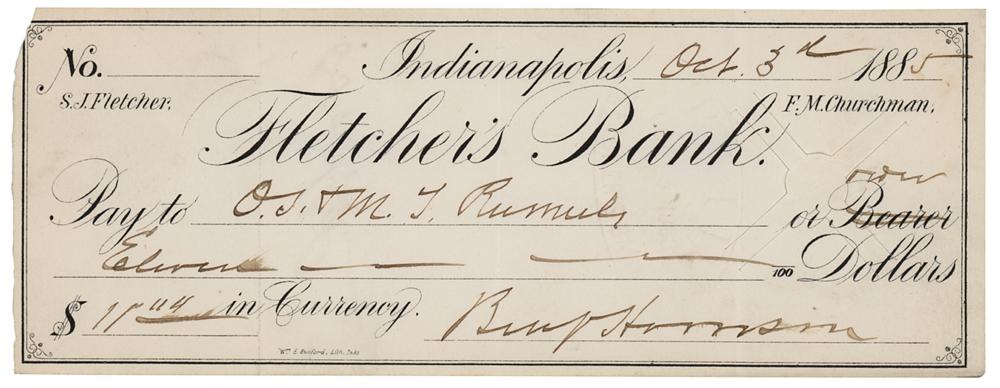 No. Indianapolis, Oct. 3d 1885
S. J. Fletcher. F. M. Churchman,
Fletcher's Bank.
order
Pay to O. S. & M. T. or Bearer
Eleven — — 100 Dollars
$ 11 in Currency. Benj Harrison
Wm. S. Lith. Inds.